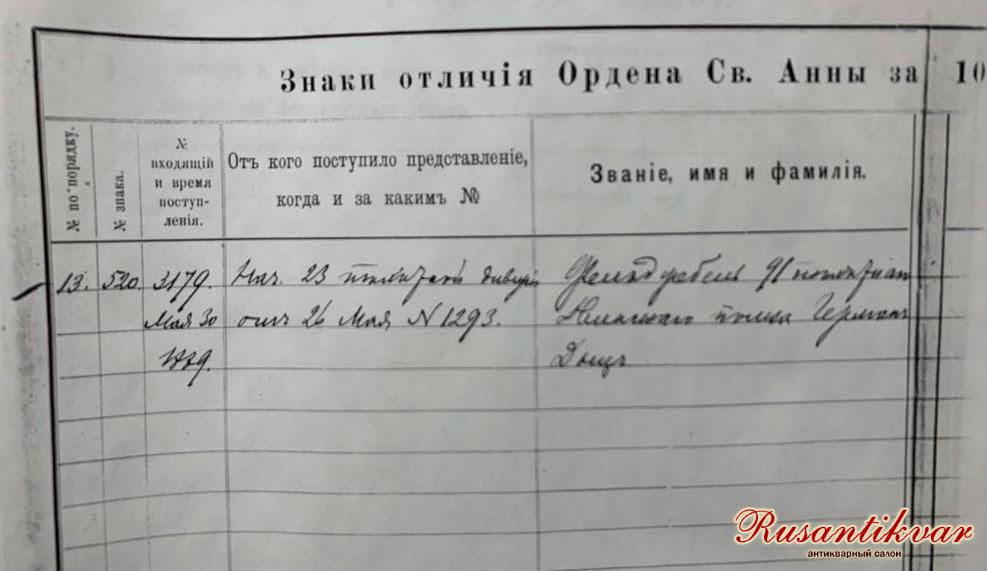 Знаки отличія Ордена Св. Анны за 10
№ по порядку.
№ знака.
№
входящій
и время
поступ-
ленія.
Отъ кого поступило представленіе,
когда и за какимъ №
Званіе, имя и фамилія.
13. 520. 3179.
Мая 30
Нач. 23 пѣхотной дивизіи
отъ 26 Мая N 1293.
Фельдфебель 91 пѣхотнаго
Двинскаго полка Германъ
Rusantikvar
антикварный салон